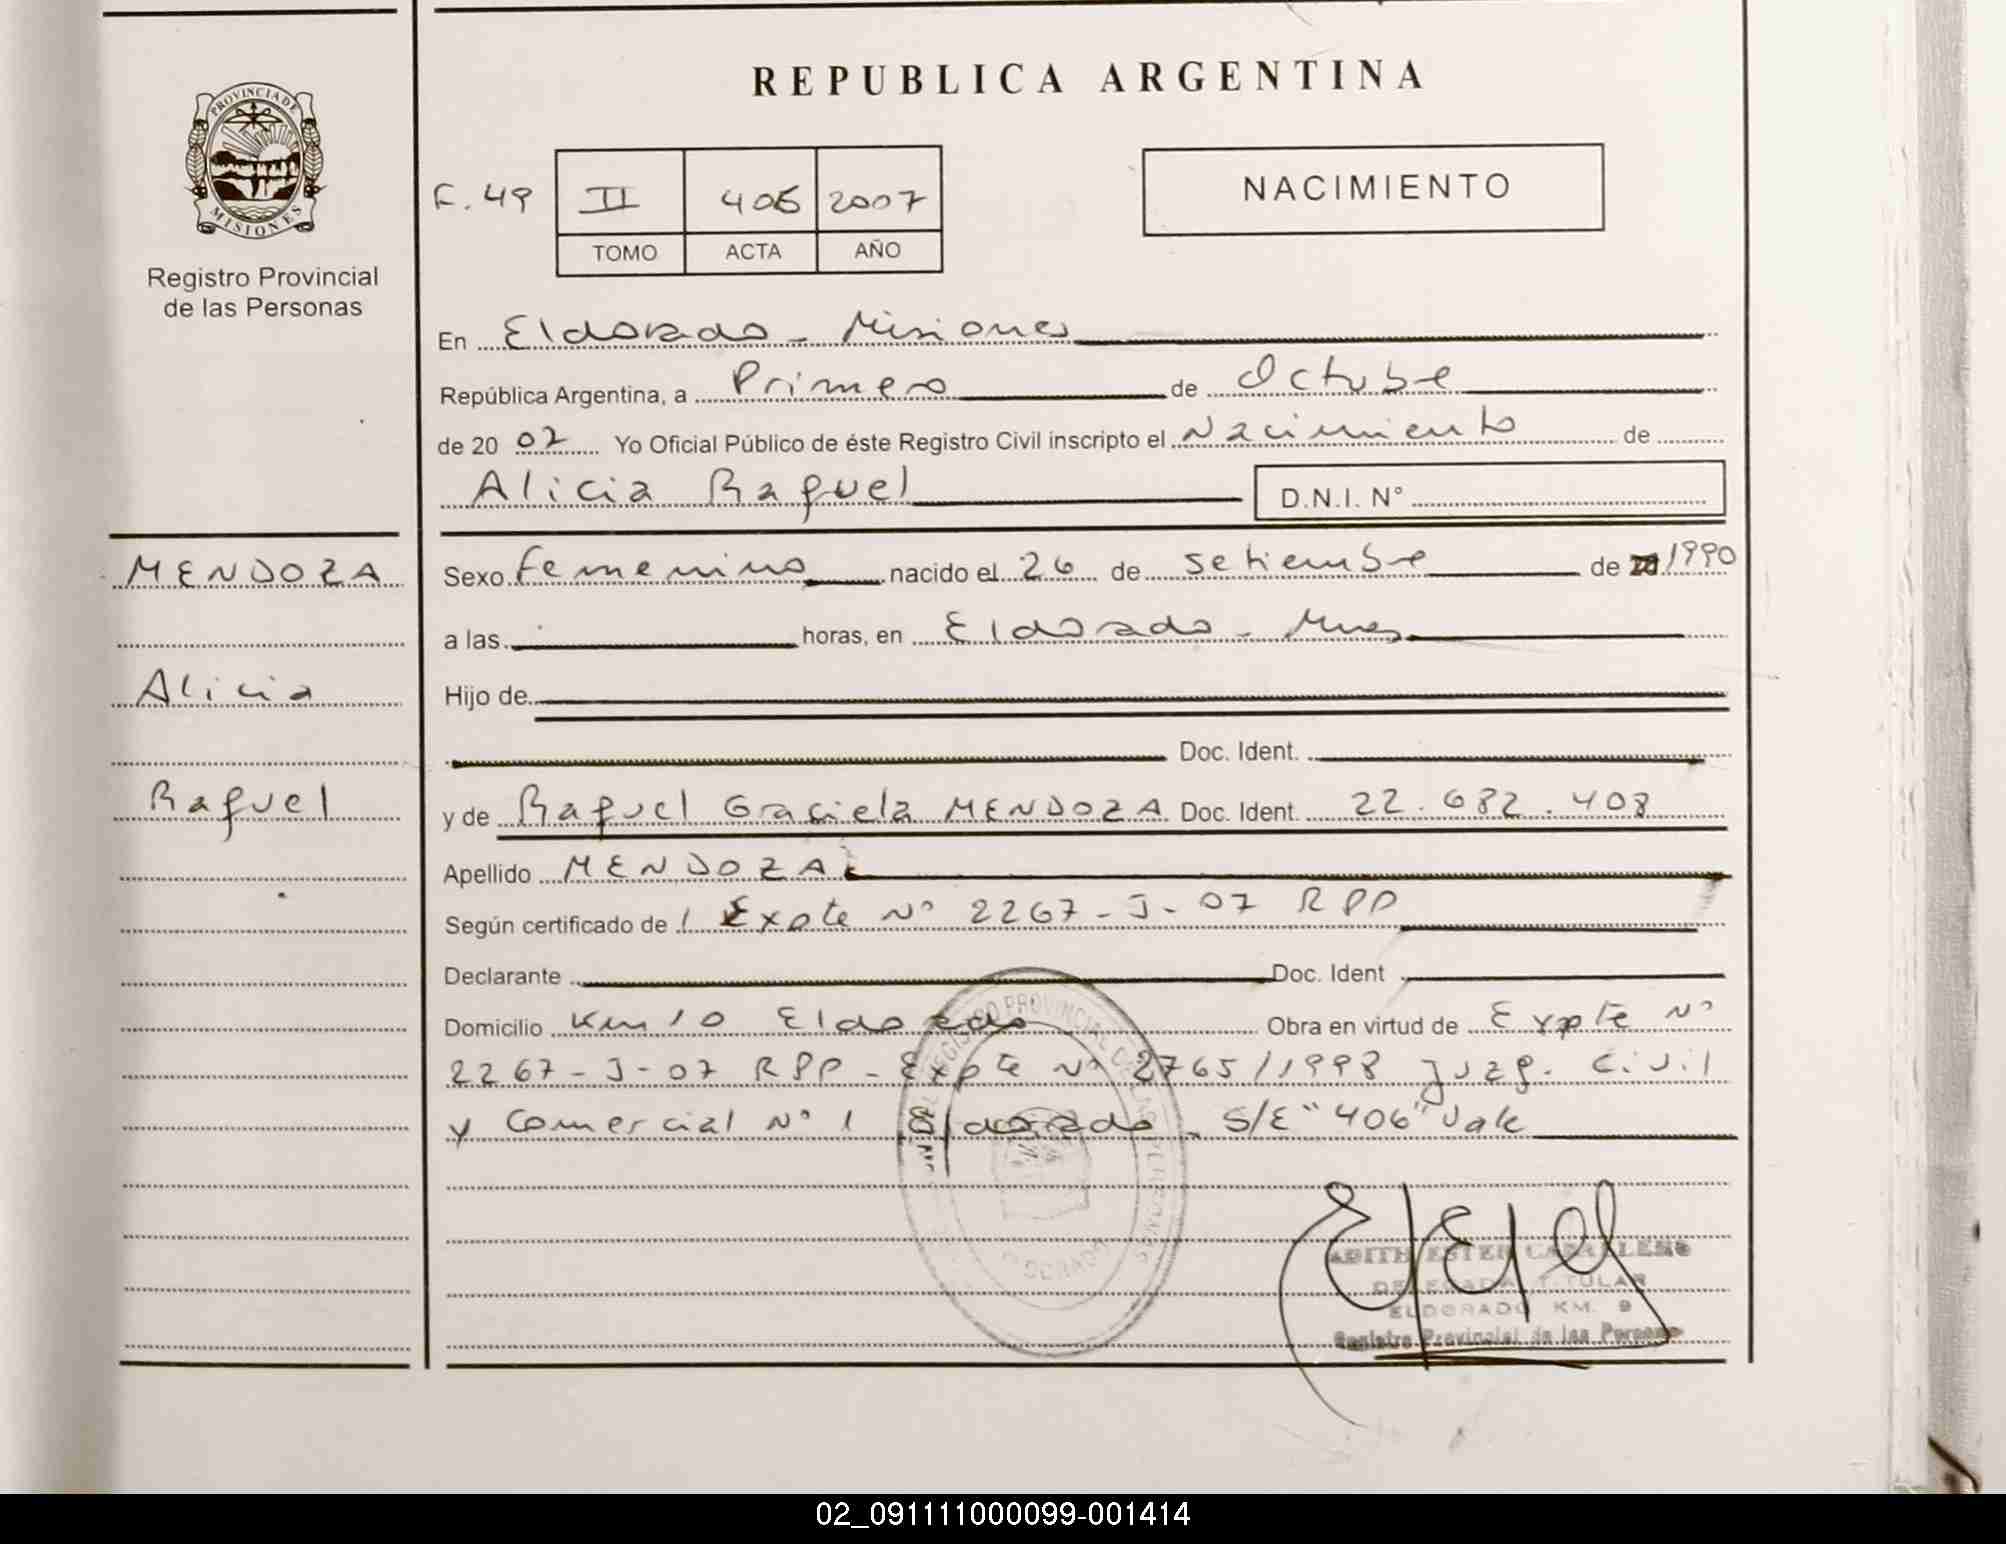 REPUBLICA ARGENTINA
PROVINCIA DE
MISIONES
Registro Provincial
de las Personas
F. 49
II 406 2007
TOMO ACTA AÑO
NACIMIENTO
En Eldorado - Misiones
República Argentina, a Primero de Octube
de 20 07 Yo Oficial Público de éste Registro Civil inscripto el Nacimiento de
Alicia Raquel D.N.I. N°
MENDOZA
Alicia
Raquel
Sexo Femenino nacido el 26 de Setiembre de 1990
a las horas, en Eldorado - Mnes
Hijo de
Doc. Ident.
y de Raquel Graciela MENDOZA Doc. Ident. 22.682.408
Apellido MENDOZA
Según certificado de Expte N° 2267-J-07 RPP
Declarante Doc. Ident
Domicilio Km 10 Eldorado Obra en virtud de Expte N°
2267-J-07 RPP - Expte N° 2765/1998 Juzg. Civil
y Comercial N° 1 Eldorado - S/E "406" Vale
REGISTRO PROVINCIAL DE LAS PERSONAS
ELDORADO
ESTER
DELEGADA TITULAR
ELDORADO KM. 9
Registro Provincial de las Personas
02_091111000099-001414